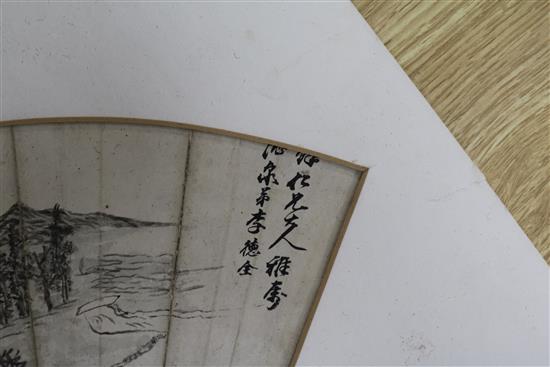 仁兄大人雅属
泉弟李德全